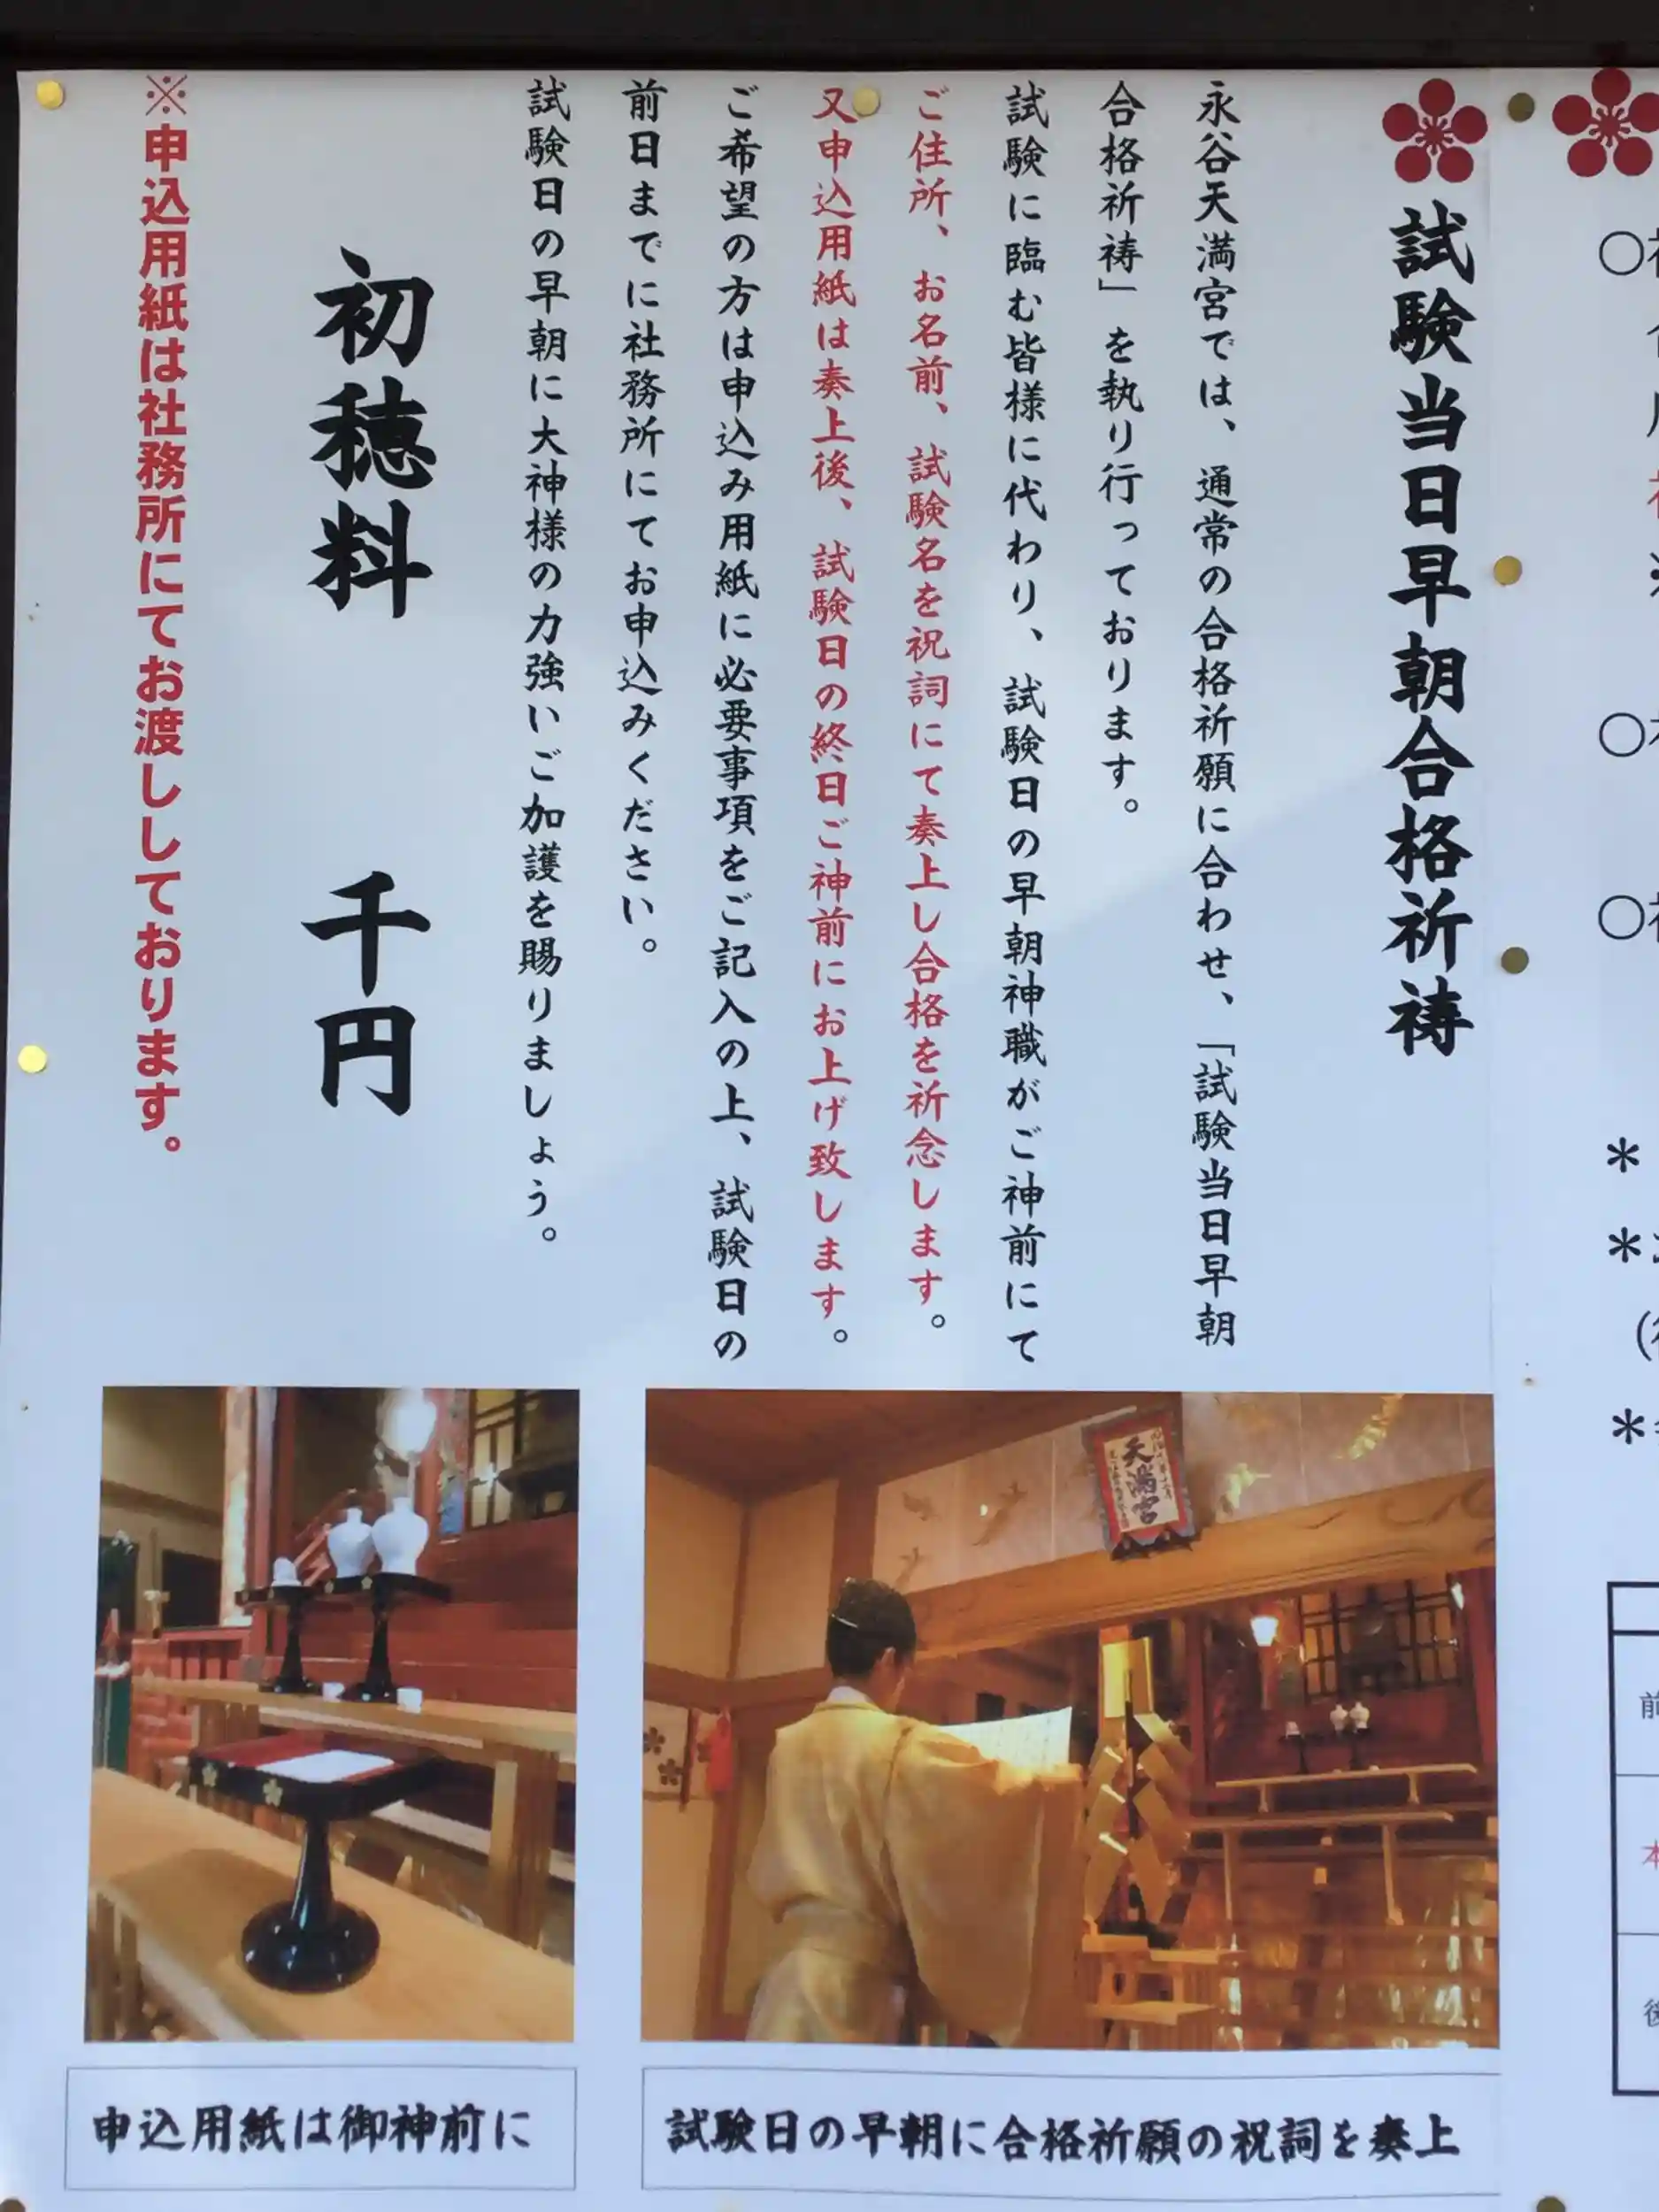 試験当日早朝合格祈祷
永谷天満宮では、通常の合格祈願に合わせ、「試験当日早朝
合格祈祷」を執り行っております。
試験に臨む皆様に代わり、試験日の早朝神職がご神前にて
ご住所、お名前、試験名を祝詞にて奏上し合格を祈念します。
又申込用紙は奏上後、試験日の終日ご神前にお上げ致します。
ご希望の方は申込み用紙に必要事項をご記入の上、試験日の
前日までに社務所にてお申込みください。
試験日の早朝に大神様の力強いご加護を賜りましょう。
初穂料 千円
※申込用紙は社務所にてお渡ししております。
天満宮
試験日の早朝に合格祈願の祝詞を奏上
申込用紙は御神前に